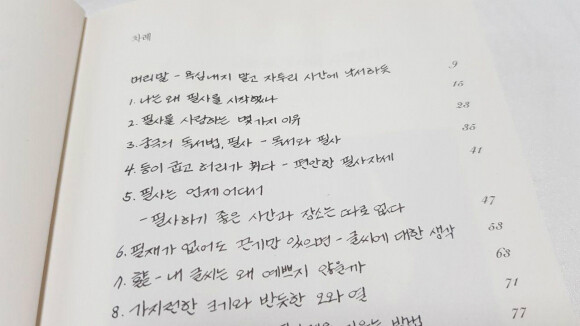 차례
머리말 - 욕심내지 말고 자투리 시간에 낙서하듯 9
1. 나는 왜 필사를 시작했나 15
2. 필사를 사랑하는 몇 가지 이유 23
3. 궁극의 독서법, 필사 - 독서와 필사 35
4. 등이 굽고 허리가 휘다 - 편안한 필사자세 41
5. 필사는 언제 어디서
- 필사하기 좋은 시간과 장소는 따로 없다 47
6. 필재가 없어도 끈기만 있으면 - 글씨에 대한 생각 53
7. - 내 글씨는 왜 예쁘지 않을까 63
8. 가지런한 크기와 반듯한 오와 열 71
77